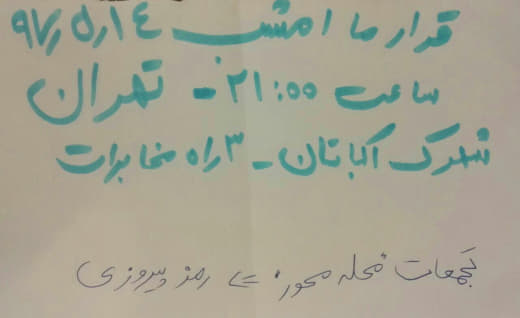 قرار ما امشب ۹۷٫۵٫۱٤
ساعت ۲۱:۰۰ - تهران
شهرک اکباتان - ۳ راه مخابرات
تجمعات محله محور: <= رمز پیروزی